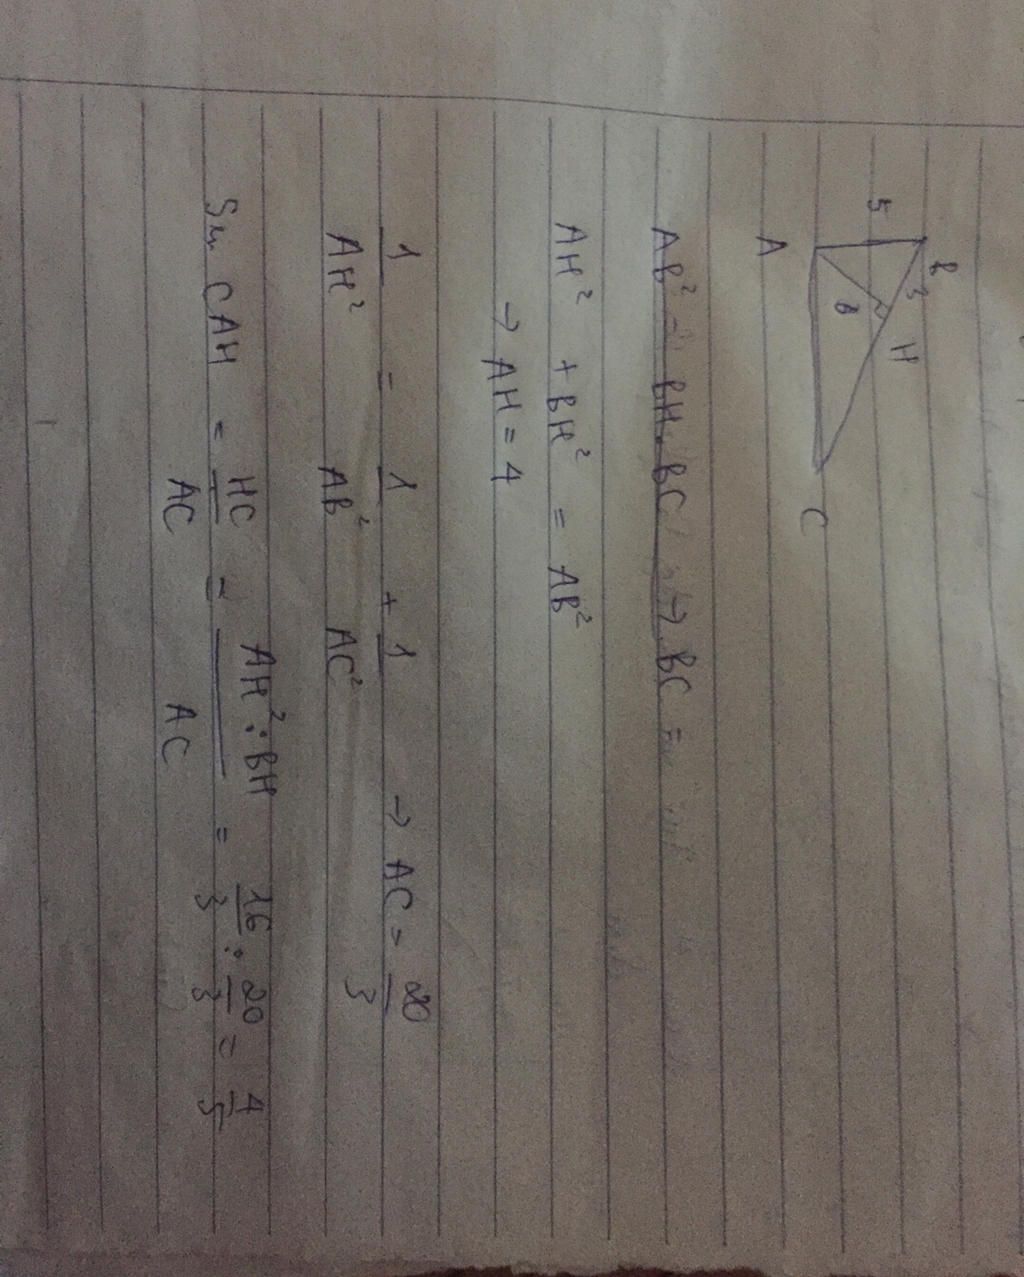 B
5
3
H
A
C
AB² = BH.BC → BC =
AH² + BH² = AB²
→ AH = 4
1/AH² = 1/AB² + 1/AC² → AC = 20/3
Sin CAH = HC/AC = AH²:BH/AC = 16/3 : 20/3 = 4/5